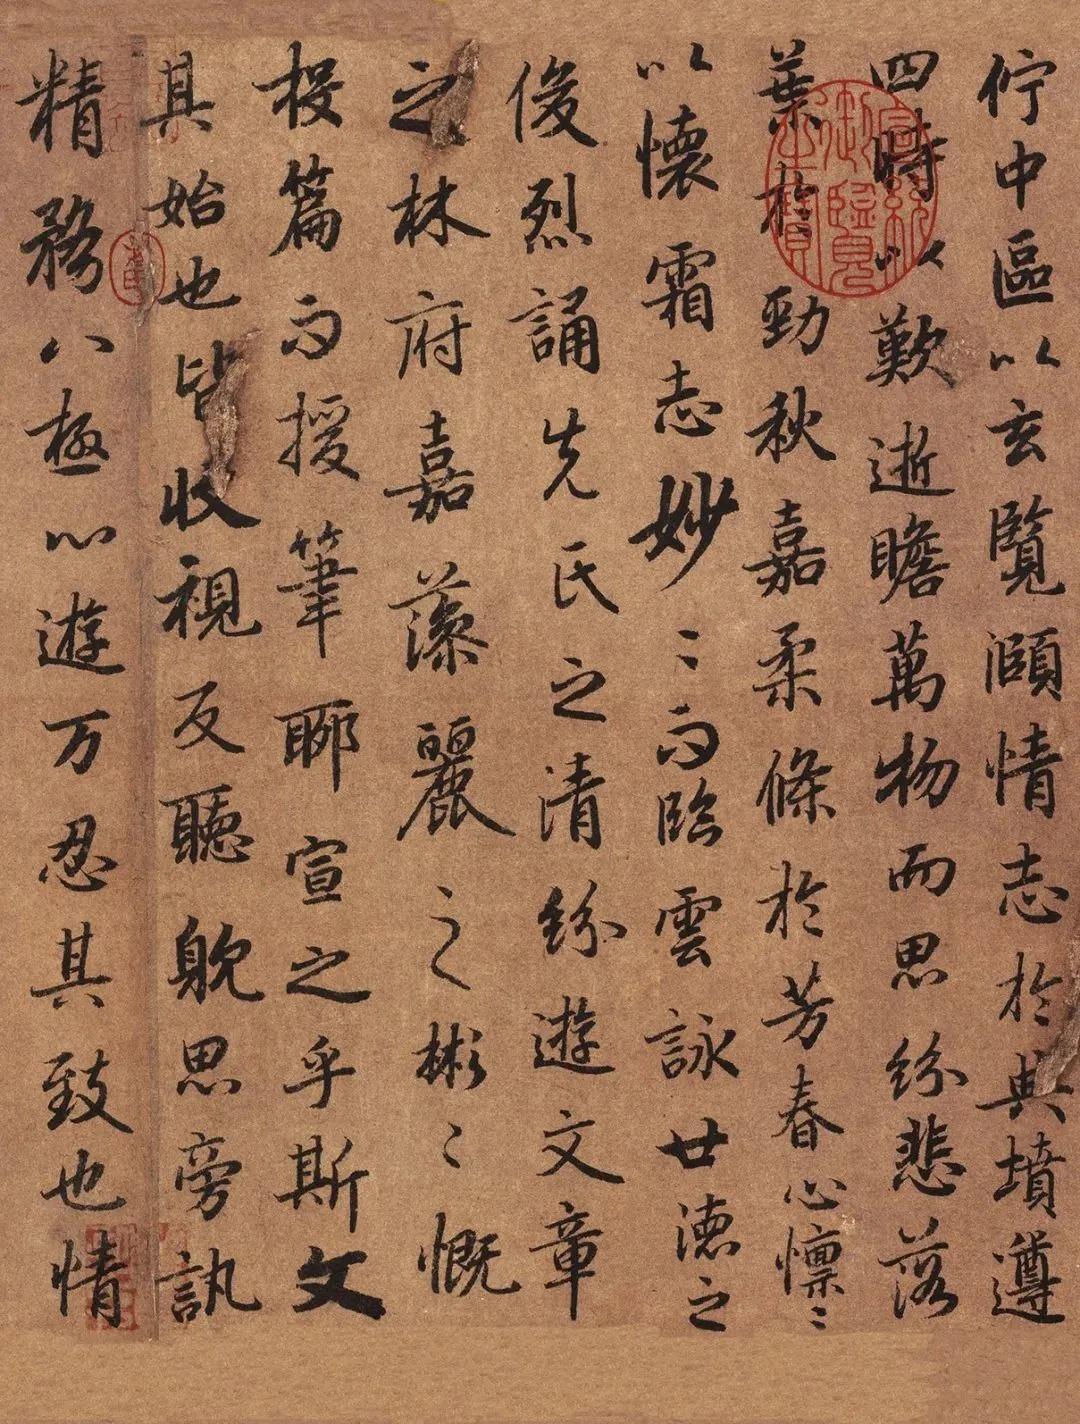 佇中區以玄覽頤情志於典墳遵
四時以歎逝瞻萬物而思紛悲落
葉於勁秋嘉柔條於芳春心懍〻
以懷霜志妙〻而臨雲詠廿德之
俊烈誦先氏之清紛遊文章
之林府嘉藻麗之彬〻慨
投篇而授筆聊宣之乎斯文
其始也皆收視反聽躭思旁訊
精務八極心遊万忍其致也情
宣統御覽之寶